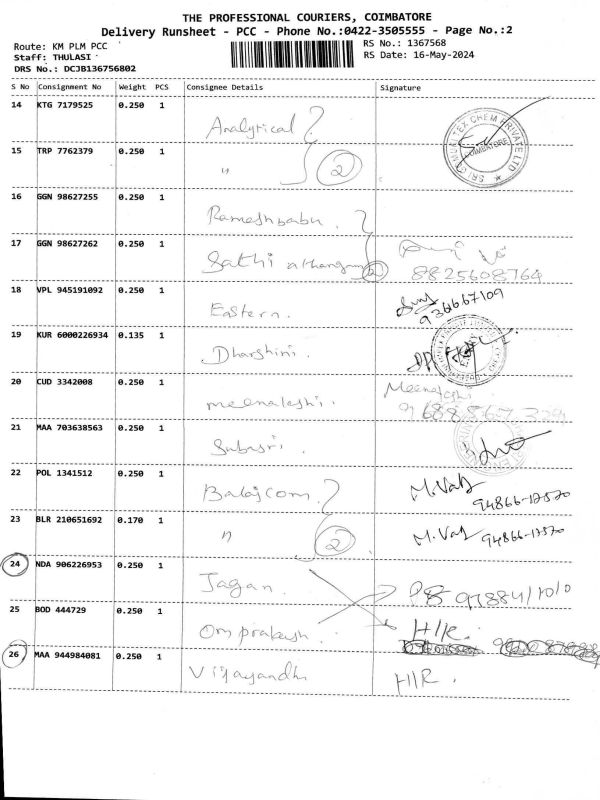 THE PROFESSIONAL COURIERS, COIMBATORE
Delivery Runsheet - PCC - Phone No.:0422-3505555 - Page No.:2
Route: KM PLM PCC
RS No.: 1367568
Staff: THULASI
RS Date: 16-May-2024
DRS No.: DCJB136756802
S No Consignment No Weight PCS Consignee Details Signature
14 KTG 7179525 0.250 1 Analytical
15 TRP 7762379 0.250 1 " 2
SRI GUMUKI TEX CHEM PRIVATE LTD COIMBATORE
16 GGN 98627255 0.250 1 Rameshbabu.
17 GGN 98627262 0.250 1 Sathi 2 8825608764
18 VPL 945191092 0.250 1 Eastern. 936667109
19 KUR 6000226934 0.135 1 Dharshini.
20 CUD 3342008 0.250 1 meenakshi. Meenakshi
21 MAA 703638563 0.250 1 Subasri.
22 POL 1341512 0.250 1 Balaj com. M.Val 94866-17570
23 BLR 210651692 0.170 1 " 2 M.Val 94866-17570
24 NDA 906226953 0.250 1 Jagan.
25 BOD 444729 0.250 1 Om prakash. H/R.
26 MAA 944984081 0.250 1 Vijayandhi H/R.